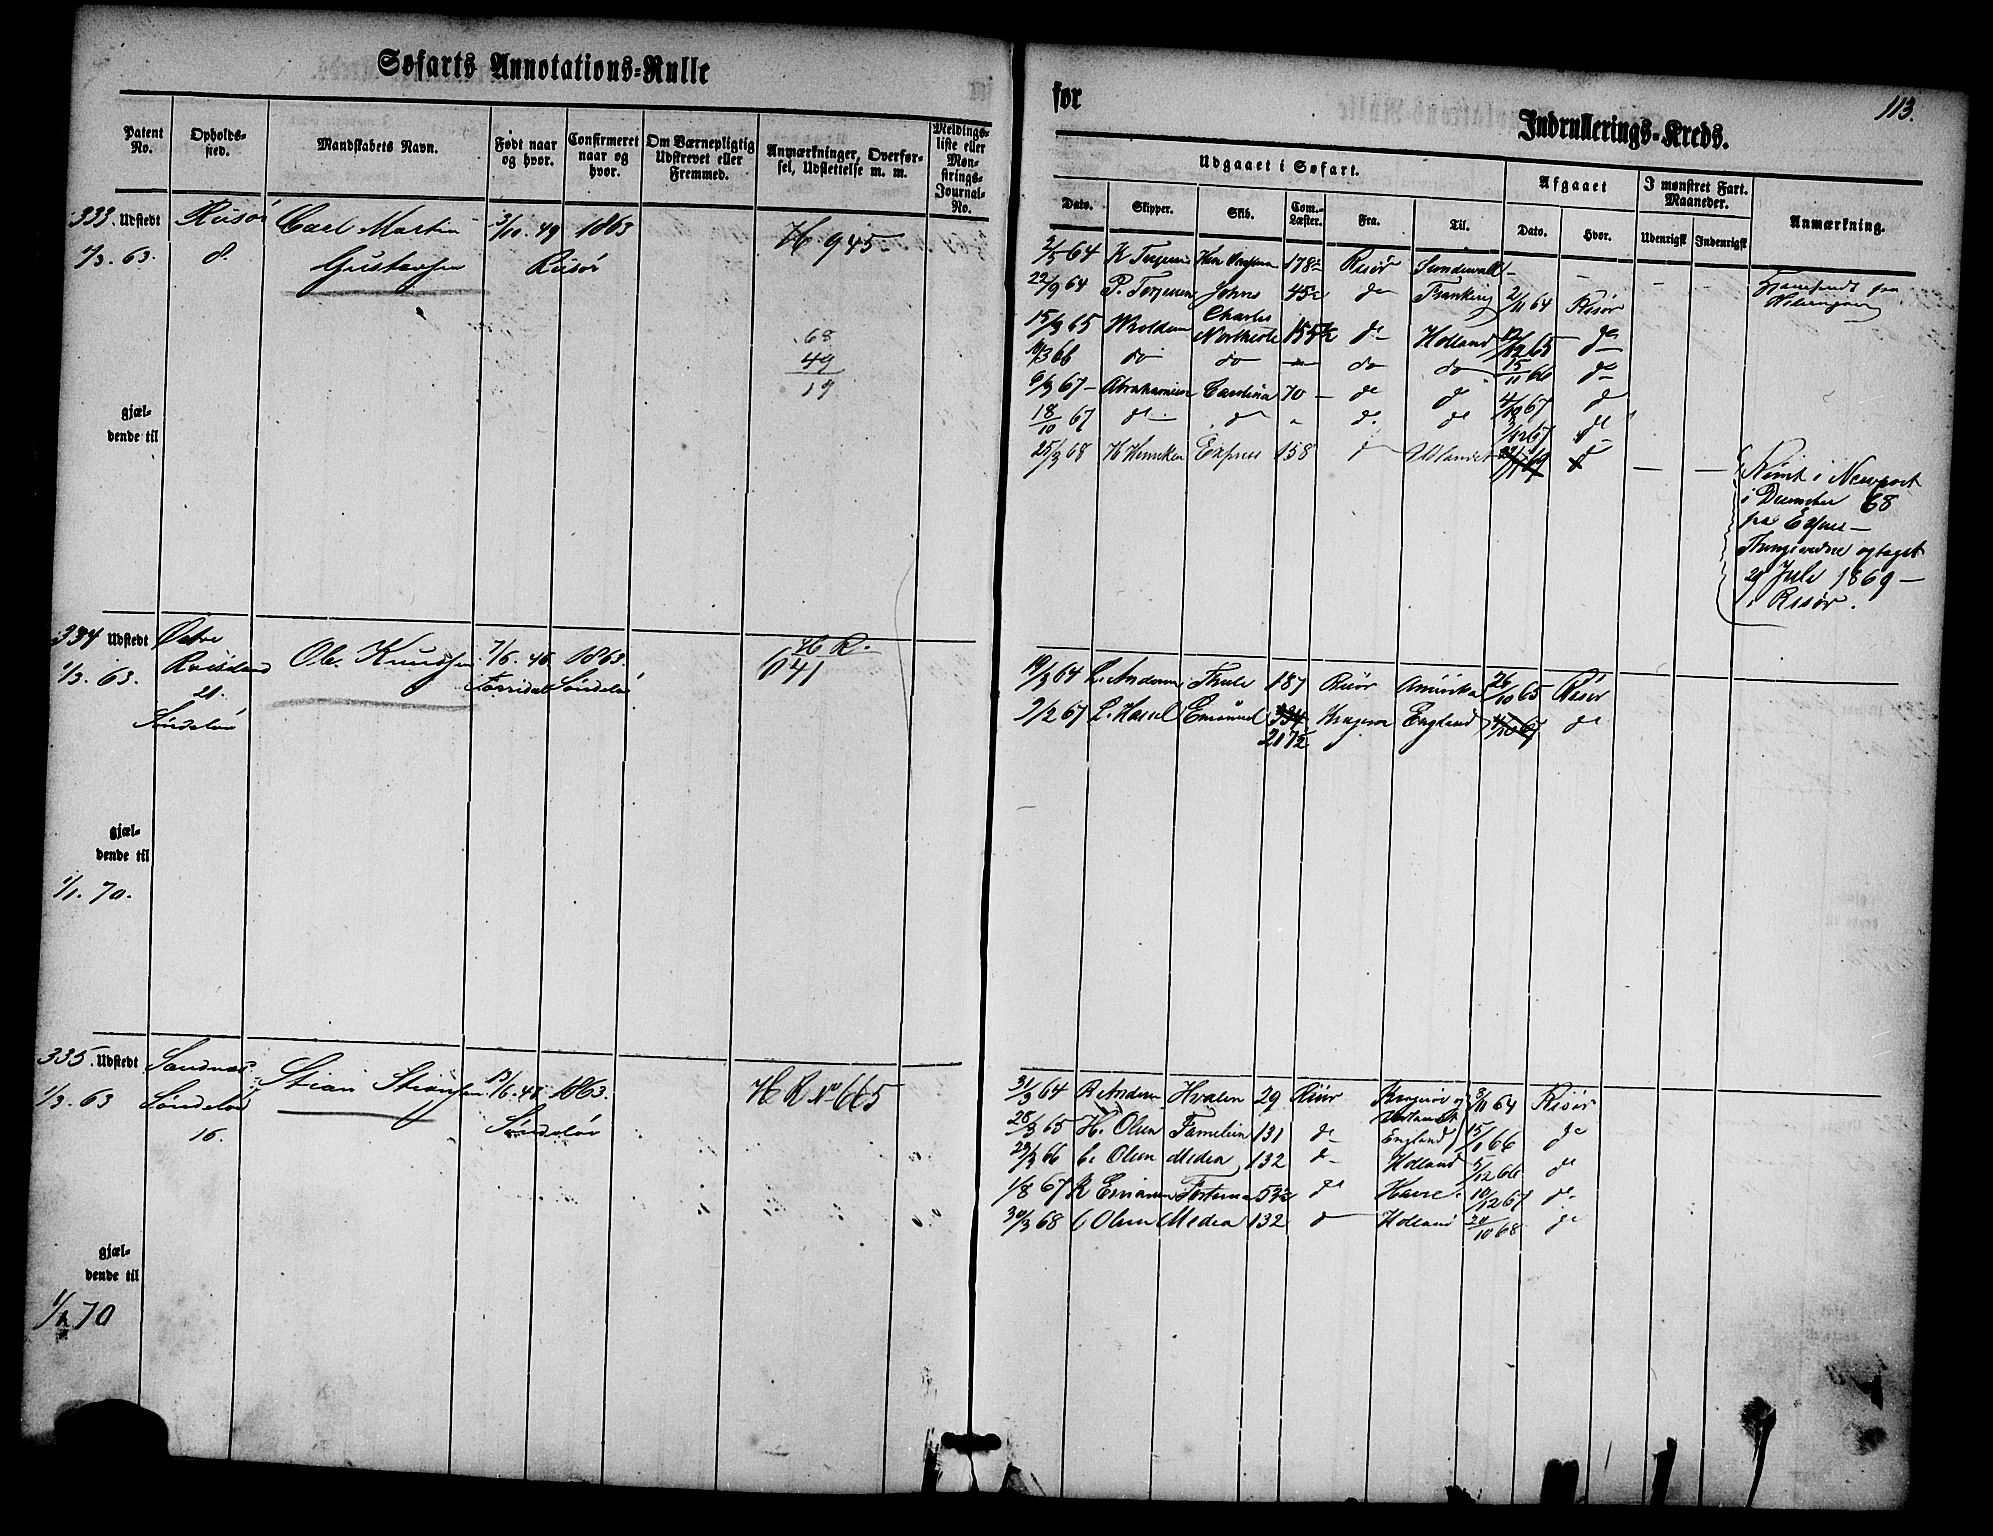 Søfarts Annotations=Rulle
for
Indrullerings=Kreds.
113.
Patent No.
Opholds=sted.
Mandskabets Navn.
Født naar og hvor.
Confirmeret naar og hvor.
Om Værnepligtig Udskrevet eller Fremmed.
Anmærkninger, Overfør=sel, Udslettelse m. m.
Meldings=liste eller Møn=strings=Journal=No.
Udgaaet i Søfart.
Afgaaet
I mønstret Fart. Maaneder.
Anmærkning.
Dato.
Skipper.
Skib.
Com.=Læster.
Fra.
Til.
Dato.
Hvor.
Udenrigsk
Indenrigsk
333. Udstedt
1/3. 63.
Risør
8.
Carl Martin
Gustavsen
3/10. 49
1863
Risør
H 945
68
49
19
gjæl=
dende til
2/5 64 Risør Sundswall
22/9 64 P. Terjesen Johns 45 do 2/11 64 Risør
15/3 65 Charles Northcote do Holland 65 do
3 66 do do do do 15/11 66 do
67 Abrahamsen Carolina 70 do do 4/10 67 do
18/10 67 do do do do 67 do
25/3 68 H Henriksen Express 158 do Udlandet do
Rømt i Newport
i December 68
fra Express
29 Juli 1869
i Risør.
334 Udstedt
1/3. 63.
Østre
21.
Søndeløv
Ole Knudsen
7/6. 46
1863.
Søndeløv
H R.
641
gjæl=
dende til
1/1. 70.
19/3 64 L. Andersen Thule 187 Risør Amerika 26/10 65 Risør
9/2 67 Kragerø England do
217½
335. Udstedt
1/3. 63
Sandnæs
Søndeløv
16.
Stian Stiansen
13/6. 48
1863.
Søndeløv
H R No 665
gjæl=
dende til
70
31/3 64 R Andersen Hvalen 29 Risør Kragerø 3/11 64 Risør
28/3 65 H. Olsen Familien 131 do England 15/1 66 do
66 C. Olsen Medea 132 do Holland 5/12 66 do
1/8 67 Fortuna do Havre. 10/12 67 do
30/3 68 C Olsen Medea 132 do Holland 20/10 68 do